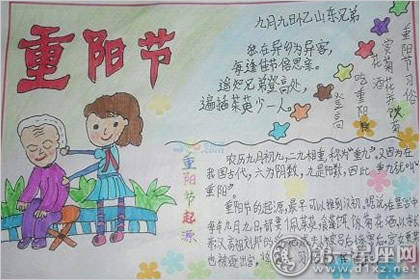 重阳节
九月九日忆山东兄弟
独在异乡为异客,
每逢佳节倍思亲。
遥知兄弟登高处,
遍插茱萸少一人。
重阳节习俗
赏菊花并饮菊
花酒
吃重阳
登高
重阳节起源
农历九月初九,二九相重,称为"重九",又因为在
我国古代,六为阴数,九是阳数,因此重九就叫
"重阳"
重阳节的起源,最早可以推到汉初,据说在皇宫中
每年九月九日,都要
汉高祖刘邦的
也被逐出宫
第一星座网